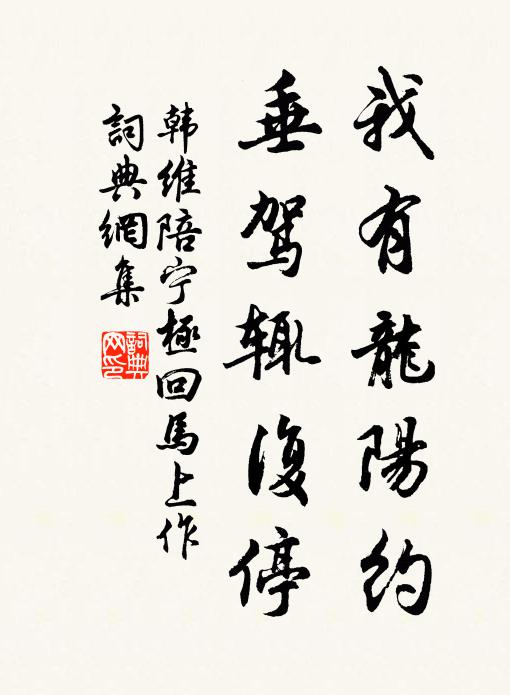 我有龍陽約
垂駕辄復停
韩維陪宁極回馬上作
詞典網集
詞典网印